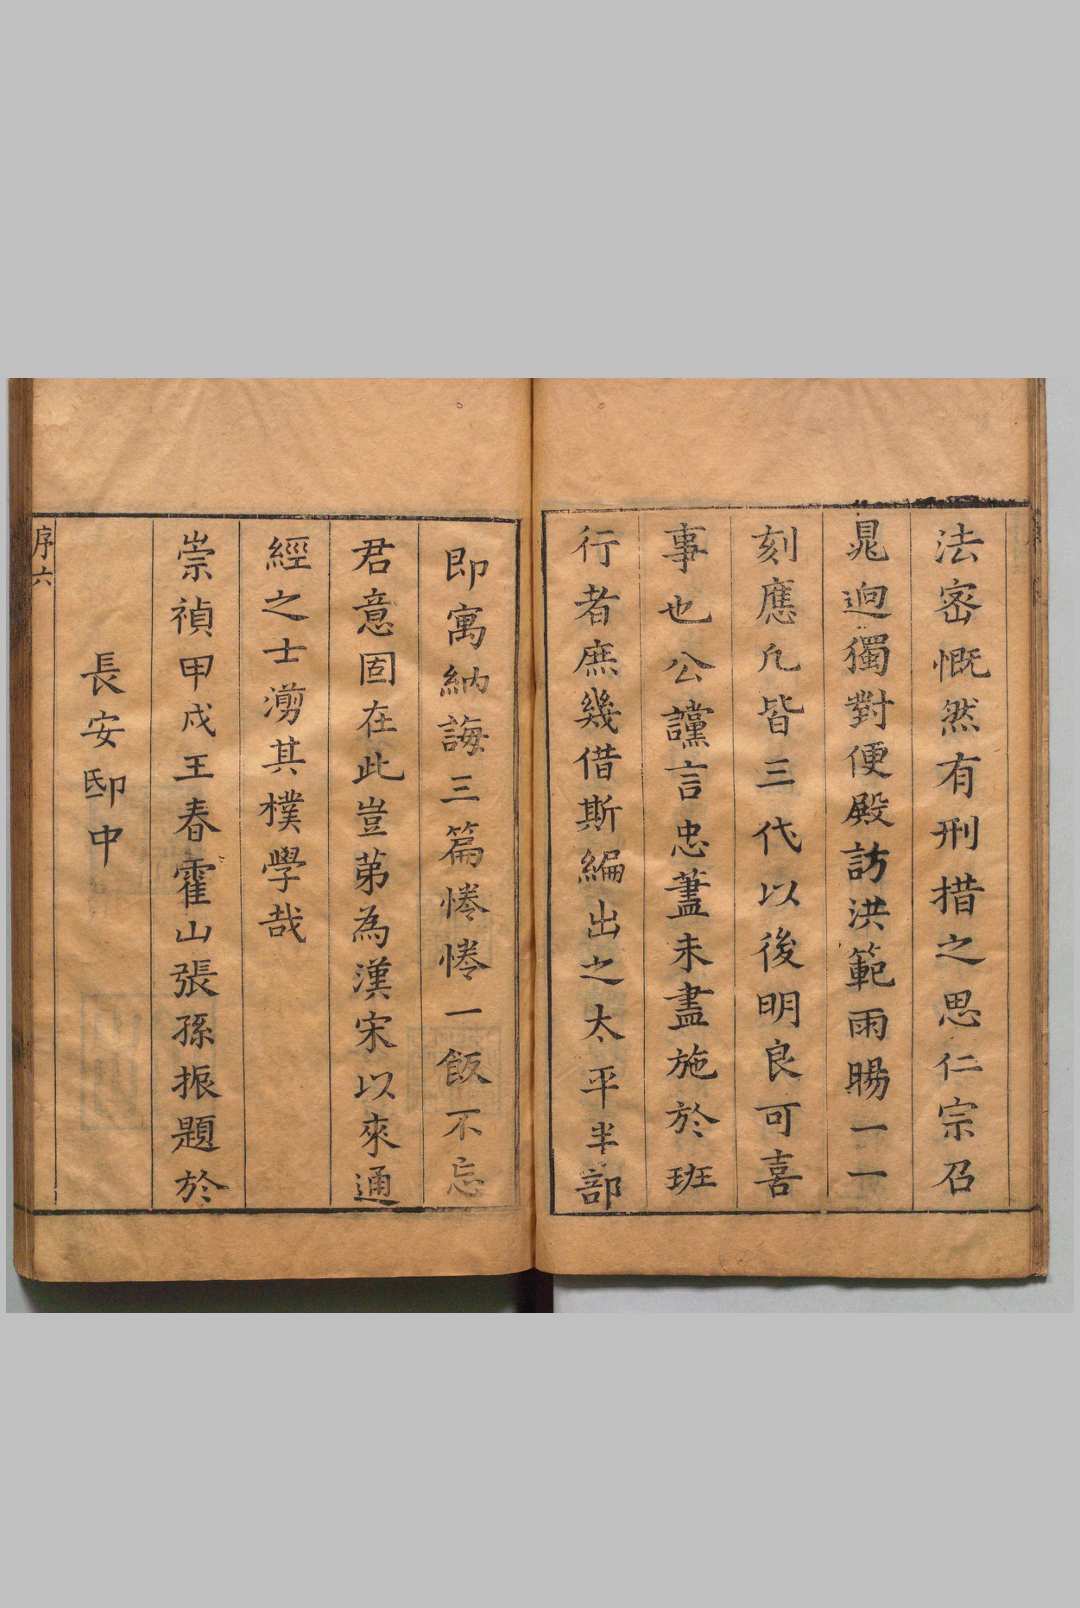 法密慨然有刑措之思仁宗召
晁迥獨對便殿訪洪範雨暘一一
刻應凢皆三代以後明良可喜
事也公讜言忠藎未盡施於班
行者庶幾借斯編出之太平半部
即寓納誨三篇惓惓一飯不忘
君意固在此豈苐為漢宋以來通
經之士湔其樸學哉
崇禎甲戌王春霍山張孫振題於
長安邸中
序六